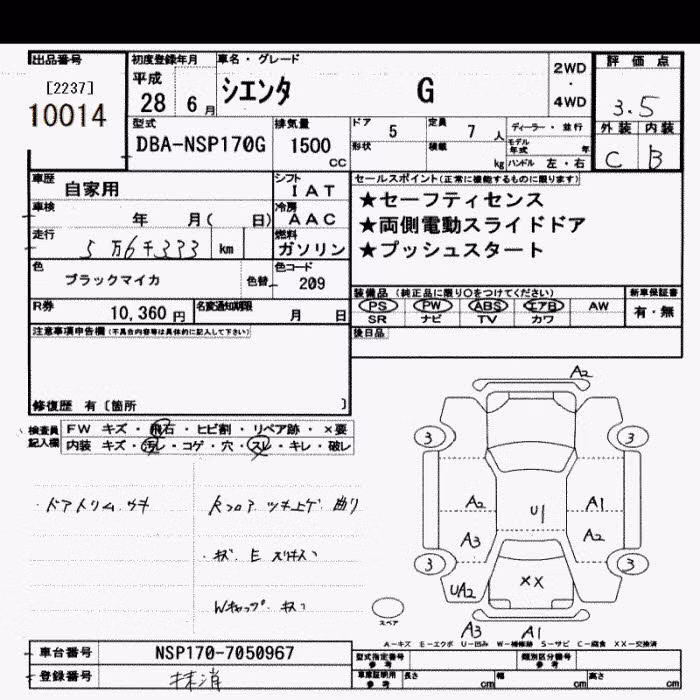 出品番号
[2237]
10014
初度登録年月
平成
28 6月
車名・グレード
シエンタ G
2WD
・
4WD
評価点
3.5
外装 内装
C B
型式
DBA-NSP170G
排気量
1500
CC
ドア 5
定員 7人
ディーラー・並行
形状
積載 kg
モデル年式 年
ハンドル 左・右
車歴
自家用
シフト
IAT
車検
年 月( 日)
冷房
AAC
走行
5万6千333 km
燃料
ガソリン
セールスポイント(正常に機能するものに限ります)
★セーフティセンス
★両側電動スライドドア
★プッシュスタート
色
ブラックマイカ
色替
色コード
209
装備品(純正品に限り○をつけてください)
PS PW ABS エアB AW
SR ナビ TV カワ
新車保証書
有・無
R券
10,360円
名変通知期限
月 日
後日品
注意事項申告欄(不具合内容等は具体的に記入して下さい)
修復歴 有〔箇所 〕
検査員記入欄
FW キズ・飛石・ヒビ割・リペア跡・×要
内装 キズ・汚レ・コゲ・穴・スレ・キレ・破レ
・ドアトリム キズ
Rフロア ツキ上ゲ 曲り
Wキャップ キズ
A2
3 3
A2 U1 A1
A3 A2
3 3
UA2 XX
A3 A1
スペア
A−キズ E−エクボ U−凹み W−補修跡 S−サビ C−腐食 XX−交換済
車台番号
NSP170-7050967
型式指定番号
参考
類別区分番号
参考
登録番号
抹消
車庫証明用
参考
長さ cm
幅 cm
高さ cm